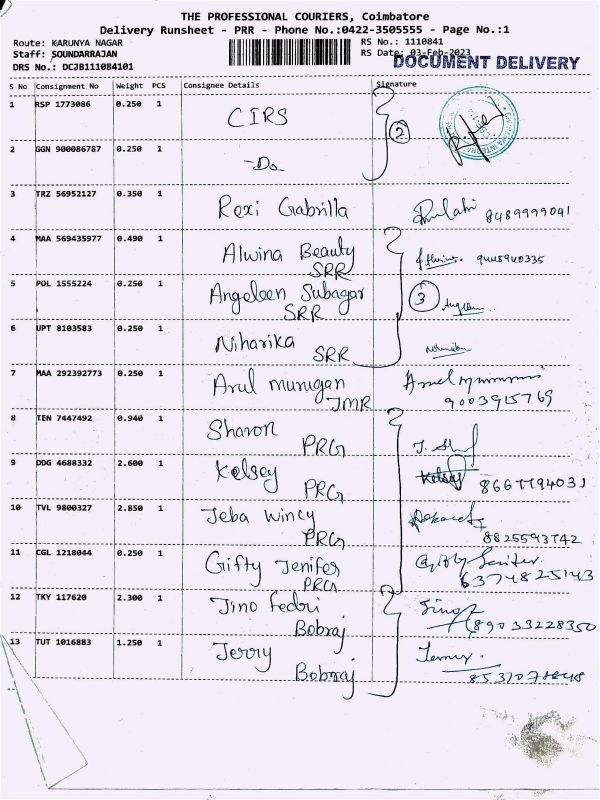 THE PROFESSIONAL COURIERS, Coimbatore
Delivery Runsheet - PRR - Phone No.:0422-3505555 - Page No.:1
Route: KARUNYA NAGAR
Staff: SOUNDARRAJAN
DRS No.: DCJB111084101
RS No.: 1110841
RS Date: 03-Feb-2023
DOCUMENT DELIVERY
S No Consignment No Weight PCS Consignee Details Signature
1 RSP 1773086 0.250 1 CIRS
2
2 GGN 900086787 0.250 1 -Do
3 TRZ 56952127 0.350 1 Rexi Gabrilla 8489999041
4 MAA 569435977 0.490 1 Alwina Beauty 9448940335
SRR
5 POL 1555224 0.250 1 Angeleen Subagar 3
SRR
6 UPT 8103583 0.250 1 Niharika
SRR
7 MAA 292392773 0.250 1 Arul murugan
JMR 9003915769
8 TEN 7447492 0.940 1 Sharon
PRG
9 DDG 4688332 2.600 1 Kelsey Kelsey 8667794031
PRG
10 TVL 9800327 2.850 1 Jeba Wincy
PRG 8825593742
11 CGL 1218044 0.250 1 Gifty Jenifer Gifty Jenifer
PRG 6374825143
12 TKY 117620 2.300 1 Jino Fedri Jino
Bobraj 89033228350
13 TUT 1016883 1.250 1 Jerry Jerry.
Bobraj